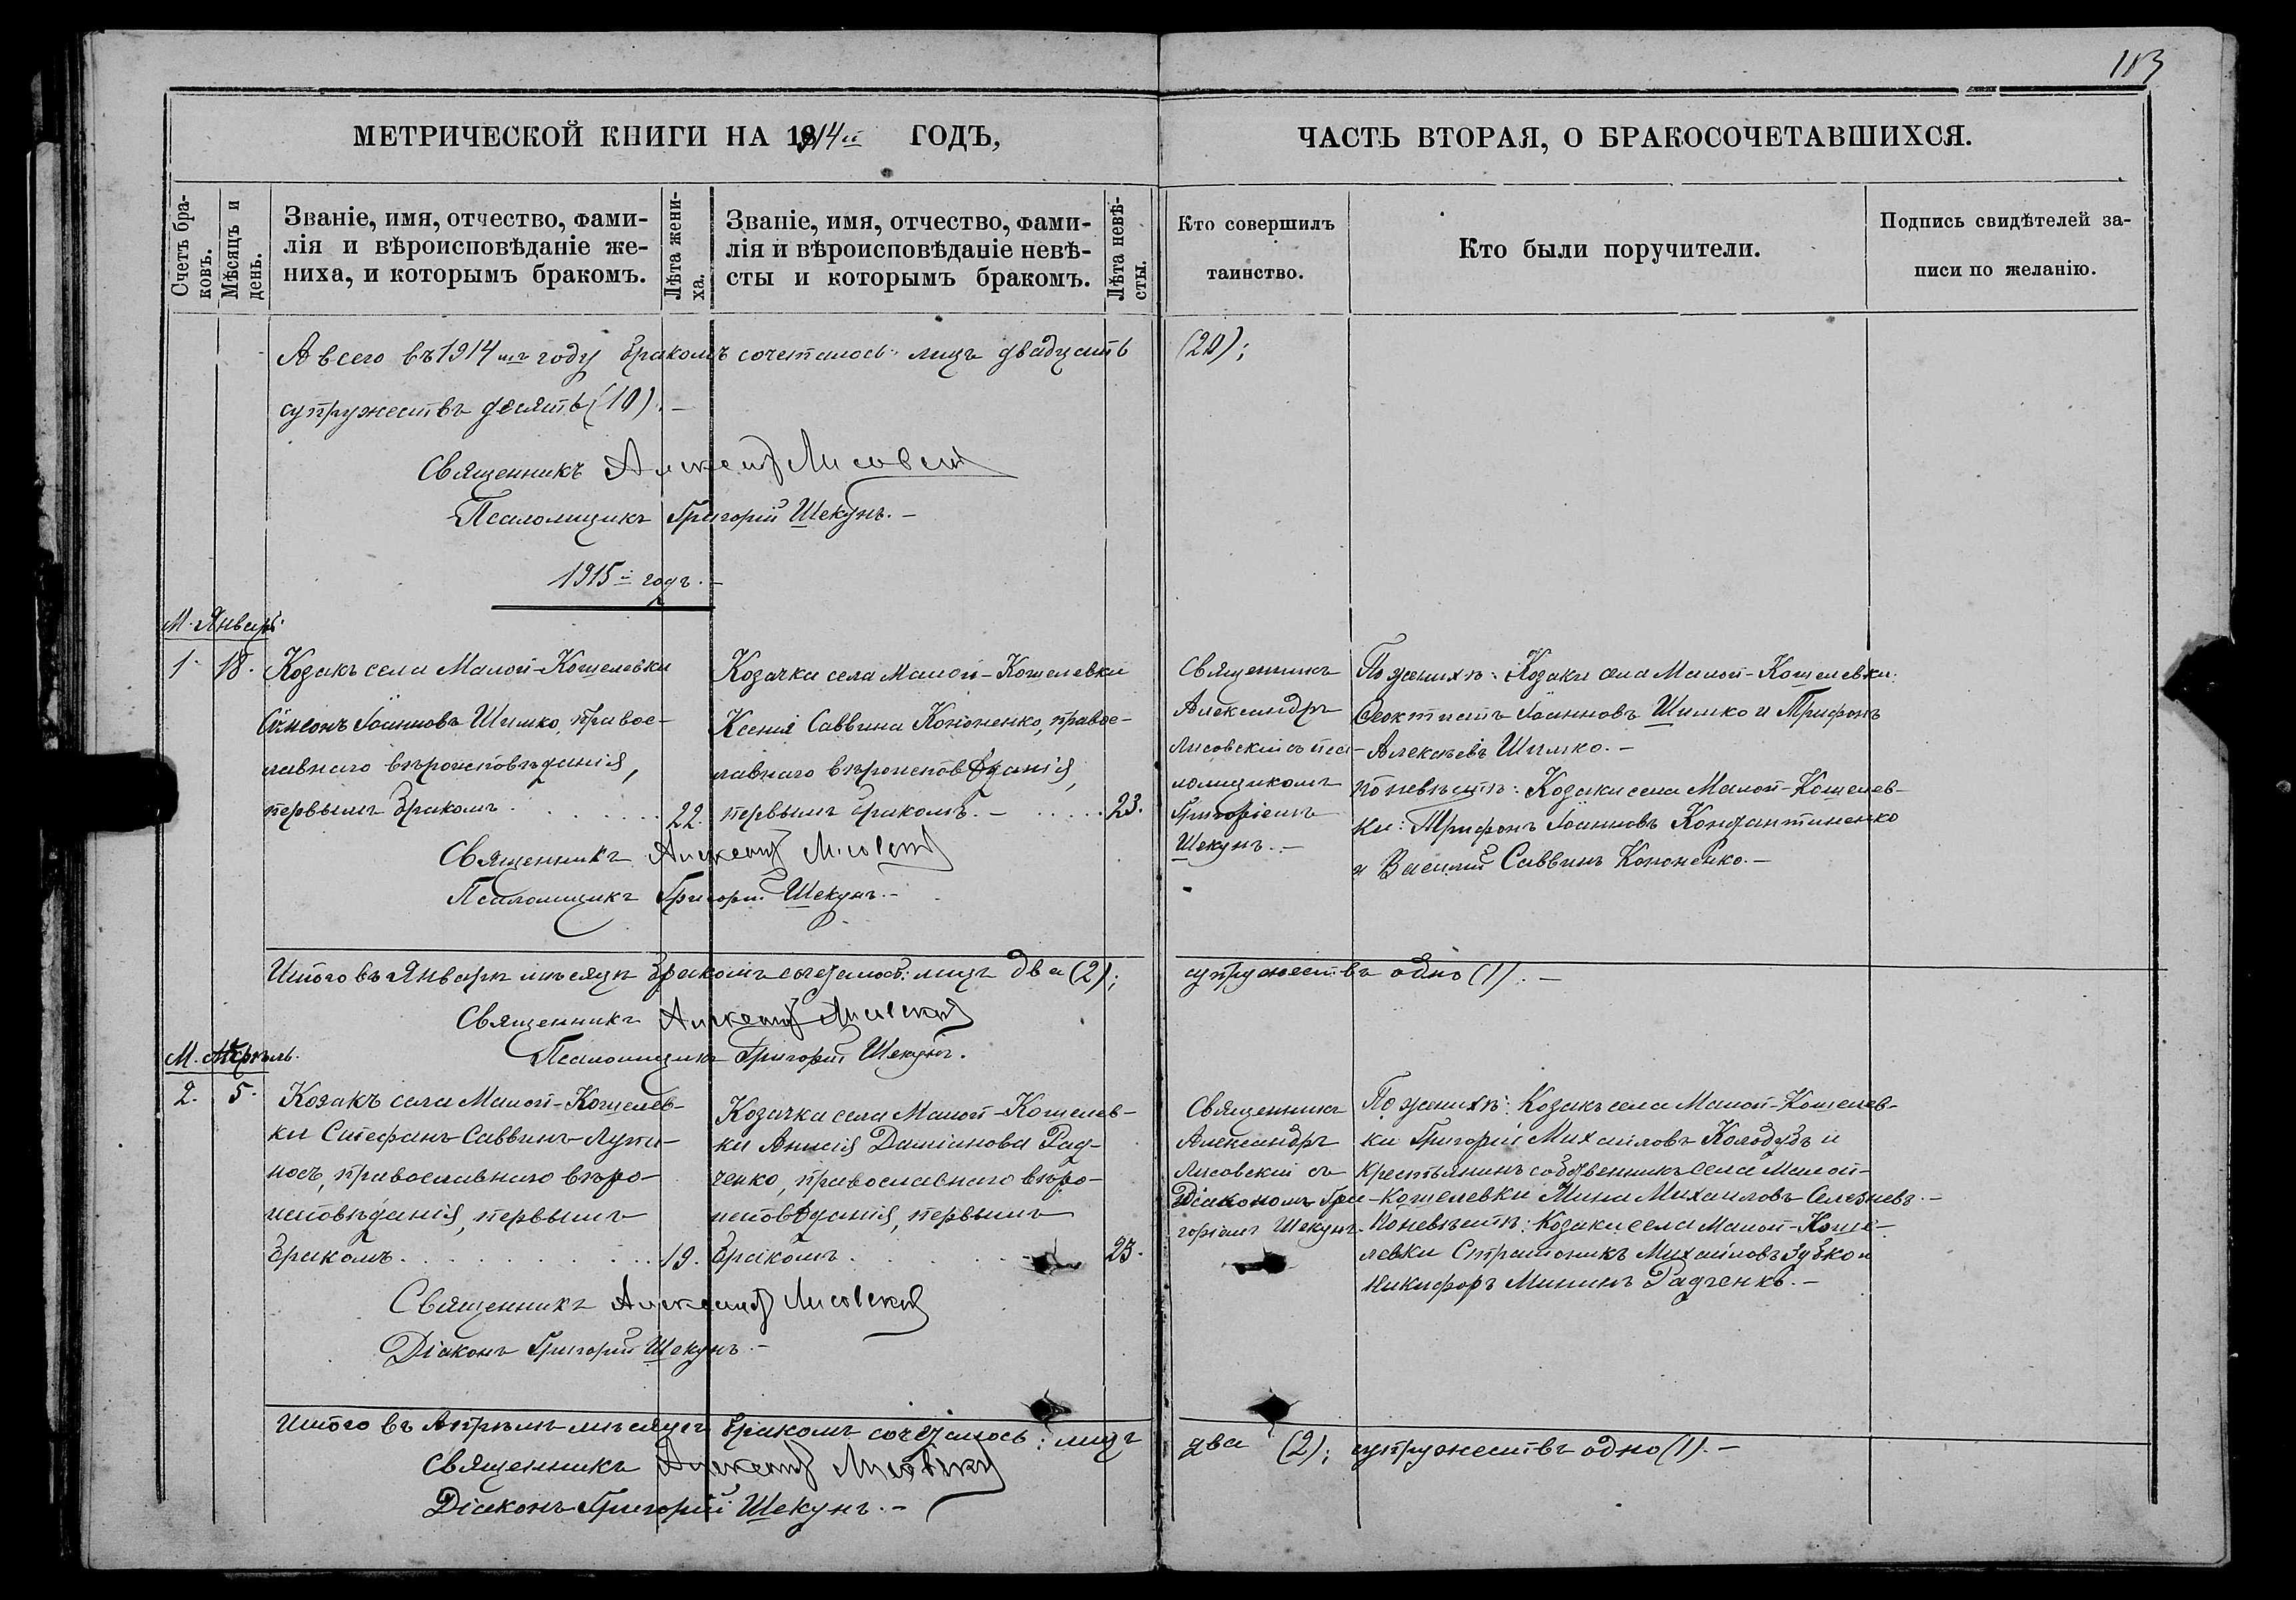 183
МЕТРИЧЕСКОЙ КНИГИ НА 1914й ГОДЪ,
ЧАСТЬ ВТОРАЯ, О БРАКОСОЧЕТАВШИХСЯ.
Счетъ бра-
ковъ.
Мѣсяцъ и
день.
Званіе, имя, отчество, фами-
лія и вѣроисповѣданіе же-
ниха, и которымъ бракомъ.
Лѣта жени-
ха.
Званіе, имя, отчество, фами-
лія и вѣроисповѣданіе невѣ-
сты и которымъ бракомъ.
Лѣта невѣ-
сты.
Кто совершилъ
таинство.
Кто были поручители.
Подпись свидѣтелей за-
писи по желанію.
А всего въ 1914 мъ году бракомъ сочеталось: лицъ двадцать (20);
супружествъ десять (10). –
Священникъ Александръ Лисовскій
Псаломщикъ Григорій Шекунъ. –
1915 й годъ. –
М. Январь.
1. 18.
Козакъ села Малой-Кошелевки
Сѵмеонъ Іоанновъ Шимко, правос-
лавнаго вѣроисповѣданія,
первымъ бракомъ . . . . . . 22.
Козачка села Малой-Кошелевки
Ксенія Саввина Кононенко, правос-
лавнаго вѣроисповѣданія,
первымъ бракомъ. – . . . . . 23.
Священникъ
Александръ
Лисовскій съ пса-
ломщикомъ
Григоріемъ
Шекунъ. –
По женихѣ: Козаки села Малой-Кошелевки:
Ѳеоктистъ Іоанновъ Шимко и Трифонъ
Алексѣевъ Шимко. –
по невѣстѣ: Козаки села Малой-Кошелев-
ки: Трифонъ Іоанновъ Константиненко
и Василій Саввинъ Кононенко. –
Священникъ Александръ Лисовскій
Псаломщикъ Григорій Шекунъ. –
Итого въ Январѣ мѣсяцѣ бракомъ сочеталось: лицъ два (2); супружествъ одно (1). –
Священникъ Александръ Лисовскій
Псаломщикъ Григорій Шекунъ.
М. Апрѣль.
2. 5.
Козакъ села Малой-Кошелев-
ки Стефанъ Саввинъ
правос­лавнаго вѣро-
исповѣданія, первымъ
бракомъ. . . . . . . . . . 19.
Козачка села Малой-Кошелев-
ки Анисія Даміанова Рад-
ченко, православнаго вѣро-
исповѣданія, первымъ
бракомъ . . . . . . 23.
Священникъ
Александръ
Лисовскій съ
Діакономъ Гри-
горіемъ Шекунъ.
По женихѣ: Козакъ села Малой-Кошелев-
ки Григорій Михаиловъ Колодубъ и
крестьянинъ собственникъ села Малой-
Кошелевки Мина Михаиловъ Селезневъ. –
По невѣстѣ: Козаки села Малой-Коше-
левки Стратоникъ Михаиловъ Зубко и
Никифоръ Мининъ Радченко. –
Священникъ Александръ Лисовскій
Діаконъ Григорій Шекунъ. –
Итого въ Апрѣлѣ мѣсяцѣ бракомъ сочеталось: лицъ два (2); супружествъ одно (1). –
Священникъ Александръ Лисовскій
Діаконъ Григорій Шекунъ. –